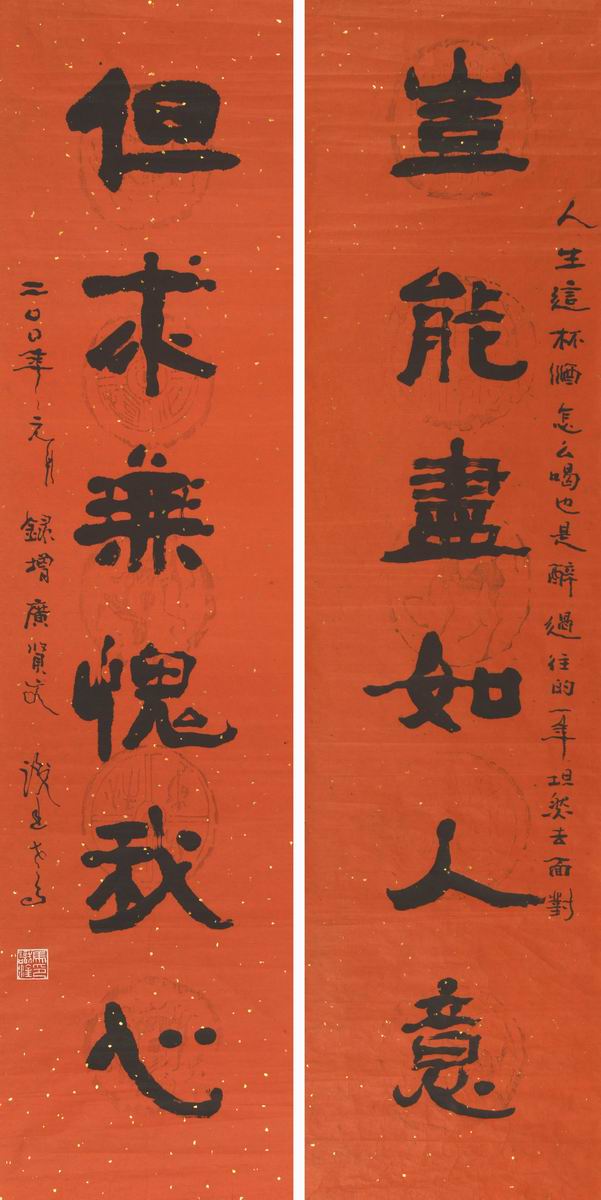 人生這杯酒怎么喝也是醉過往的一年坦然去面對
豈能盡如人意
但求無愧我心
二〇〇年元月 録增廣賢文